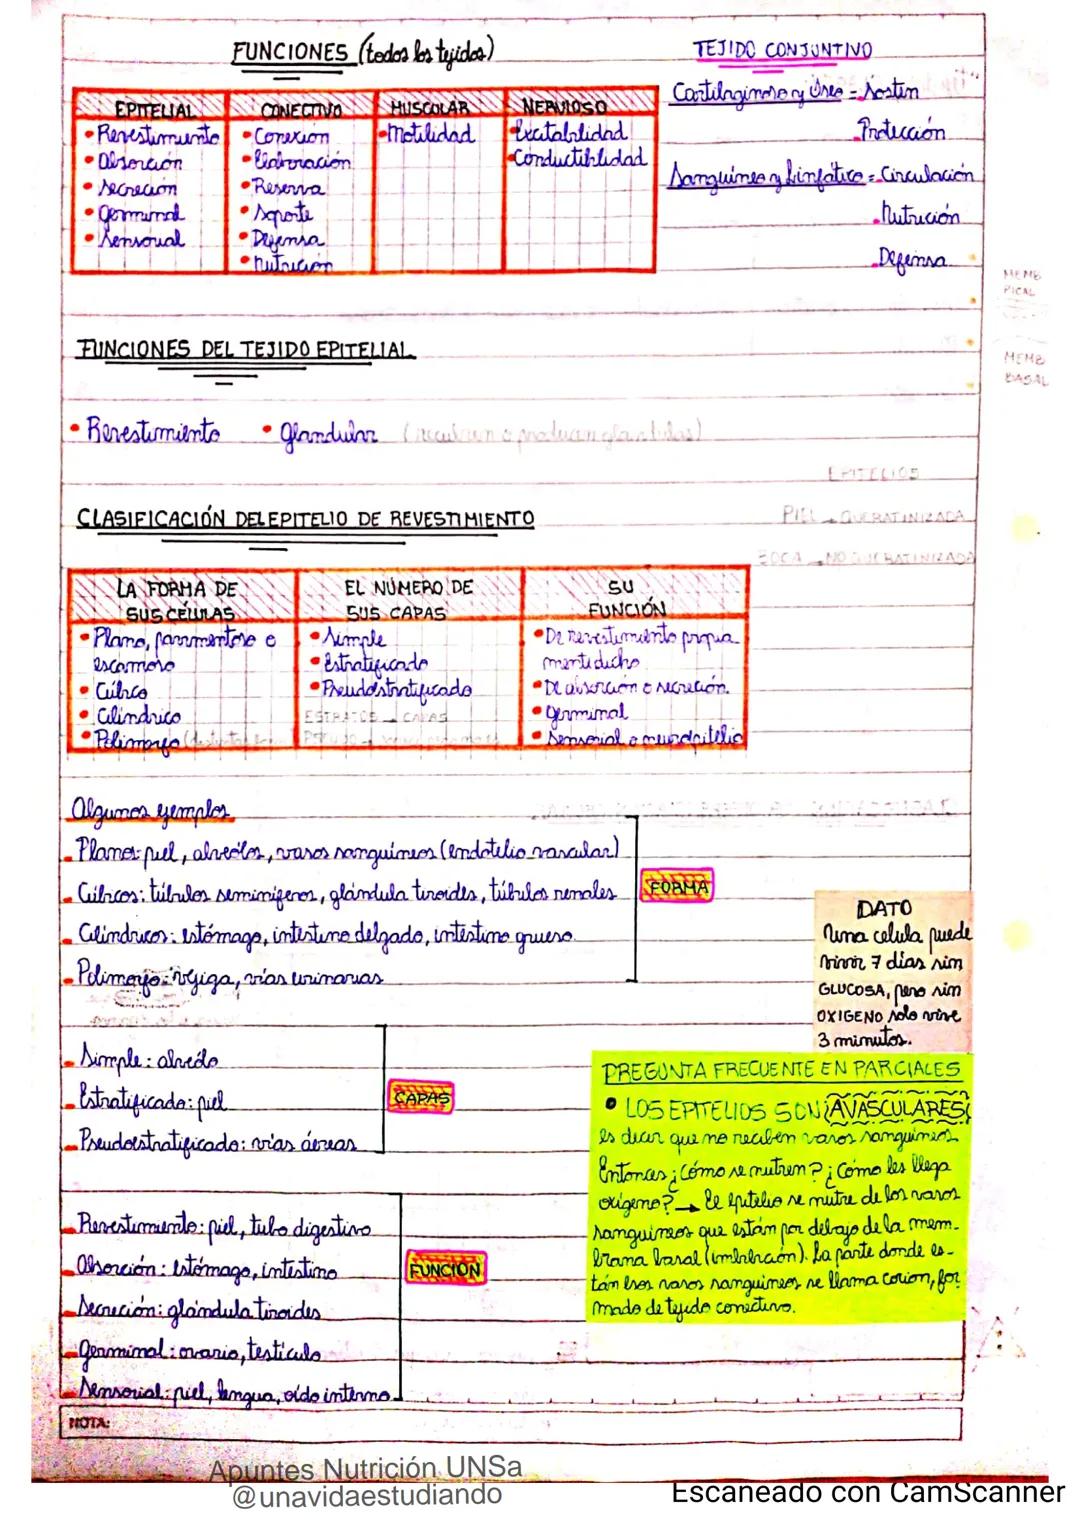 FUNCIONES (todos los tejidos)
EPITELIAL
• Revestimiento
• Absorción
• Secreción
• Germinal
• Sensorial
CONECTIVO
• Conexión
• Elaboración
• Reserva
• Soporte
• Defensa
• Nutrición
MUSCULAR
• Motilidad
NERVIOSO
• Excitabilidad
• Conductibilidad
TEJIDO CONJUNTIVO
Cartilaginoso y Óseo = Sostén
Protección
Sanguíneo y Linfático = Circulación
Nutrición
Defensa
MEMB
PICAL
MEMB
BASAL
FUNCIONES DEL TEJIDO EPITELIAL
• Revestimiento • Glandular (recubren o producen glándulas)
EPITELIOS
PIEL → QUERATINIZADA
BOCA → NO QUERATINIZADA
CLASIFICACIÓN DEL EPITELIO DE REVESTIMIENTO
LA FORMA DE
SUS CÉLULAS
• Plano, pavimentoso o
escamoso
• Cúbico
• Cilíndrico
• Polimorfo
EL NÚMERO DE
SUS CAPAS
• Simple
• Estratificado
• Pseudoestratificado
ESTRATOS → CAPAS
SU
FUNCIÓN
• De revestimiento propia
mente dicho
• De absorción o secreción.
• Germinal
• Sensorial o neuroepitelio
Algunos ejemplos
Planos: piel, alvéolos, vasos sanguíneos (endotelio vascular)
Cúbicos: túbulos seminíferos, glándula tiroides, túbulos renales
Cilíndricos: estómago, intestino delgado, intestino grueso.
Polimorfo: vejiga, vías urinarias
FORMA
DATO
Una celula puede
vivir 7 días sin
GLUCOSA, pero sin
OXIGENO solo vive
3 minutos.
Simple: alvéolo
Estratificado: piel
Pseudoestratificado: vías áereas
CAPAS
PREGUNTA FRECUENTE EN PARCIALES
• LOS EPITELIOS SON AVASCULARES
es decir que no reciben vasos sanguíneos
Entonces ¿Cómo se nutren? ¿Cómo les llega
oxígeno? → El epitelio se nutre de los vasos
sanguíneos que están por debajo de la mem-
brana basal (imbibición). La parte donde es-
tán esos vasos sanguíneos se llama corion, for
mado de tejido conectivo.
Revestimiento: piel, tubo digestivo
Absorción: estómago, intestino
Secreción: glándula tiroides
Germinal: ovario, testículo
Sensorial: piel, lengua, oído interno
FUNCIÓN
NOTA:
Apuntes Nutrición UNSa
@unavidaestudiando
Escaneado con CamScanner